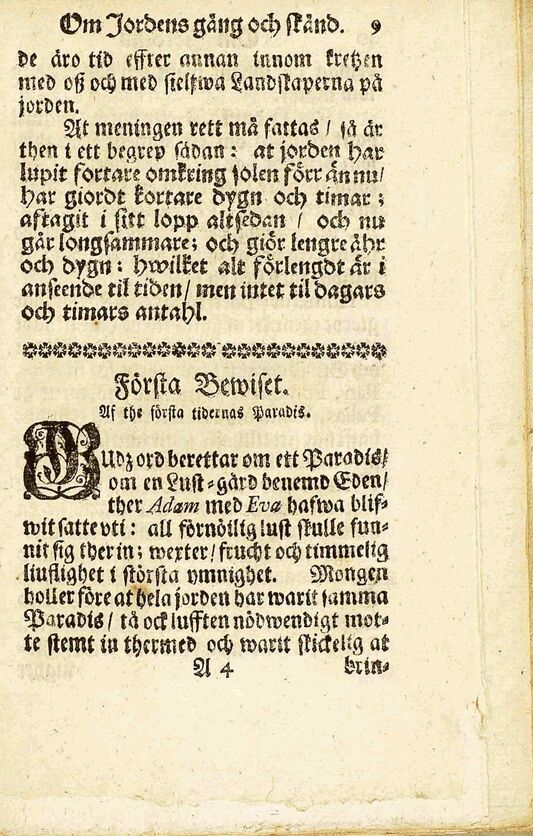 Om Jordens gång och skänd. 9
de äro tid effter annan innom kretzen
med oß och med sielfwa Landskaperna på
jorden.
At meningen rett må fattas / så är
then i ett begrep sådan: at jorden har
lupit fortare omkring solen förr än nu/
har giordt kortare dygn och timar;
aftagit i sitt lopp altsedan / och nu
går longsammare; och giör lengre åhr
och dygn: hwilket alt förlengdt är i
anseende til tiden/ men intet til dagars
och timars antahl.
Första Bewiset.
Af the första tidernas Paradis.
GUdz ord berettar om ett Paradis/
om en Lust-gård benemd Eden/
ther Adam med Eva hafwa blif-
wit satte vti: all förnöilig lust skulle fun-
nit sig ther in; wexter/ frucht och timmelig
liuflighet i största ymnighet. Mongen
holler före at hela jorden har warit samma
Paradis/ tå ock lufften nödwendigt mot-
te stemt in thermed och warit skickelig at
A 4 brin-